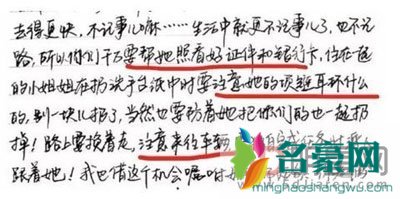 去得更快,不记事儿嘛……生活中就更不记事儿了,也不记
路,所以你们千万要帮她照看好证件和银行卡,住在一起
的小姐姐在扔洗手台纸巾时要注意她的项链耳环什么
的,别一块儿扔了,当然也要防着她把你们的也一起扔
掉!路上要挨着走,注意来往车辆
跟着她!我也借这个机会嘱咐
名豪网
minghaoshangbang.com